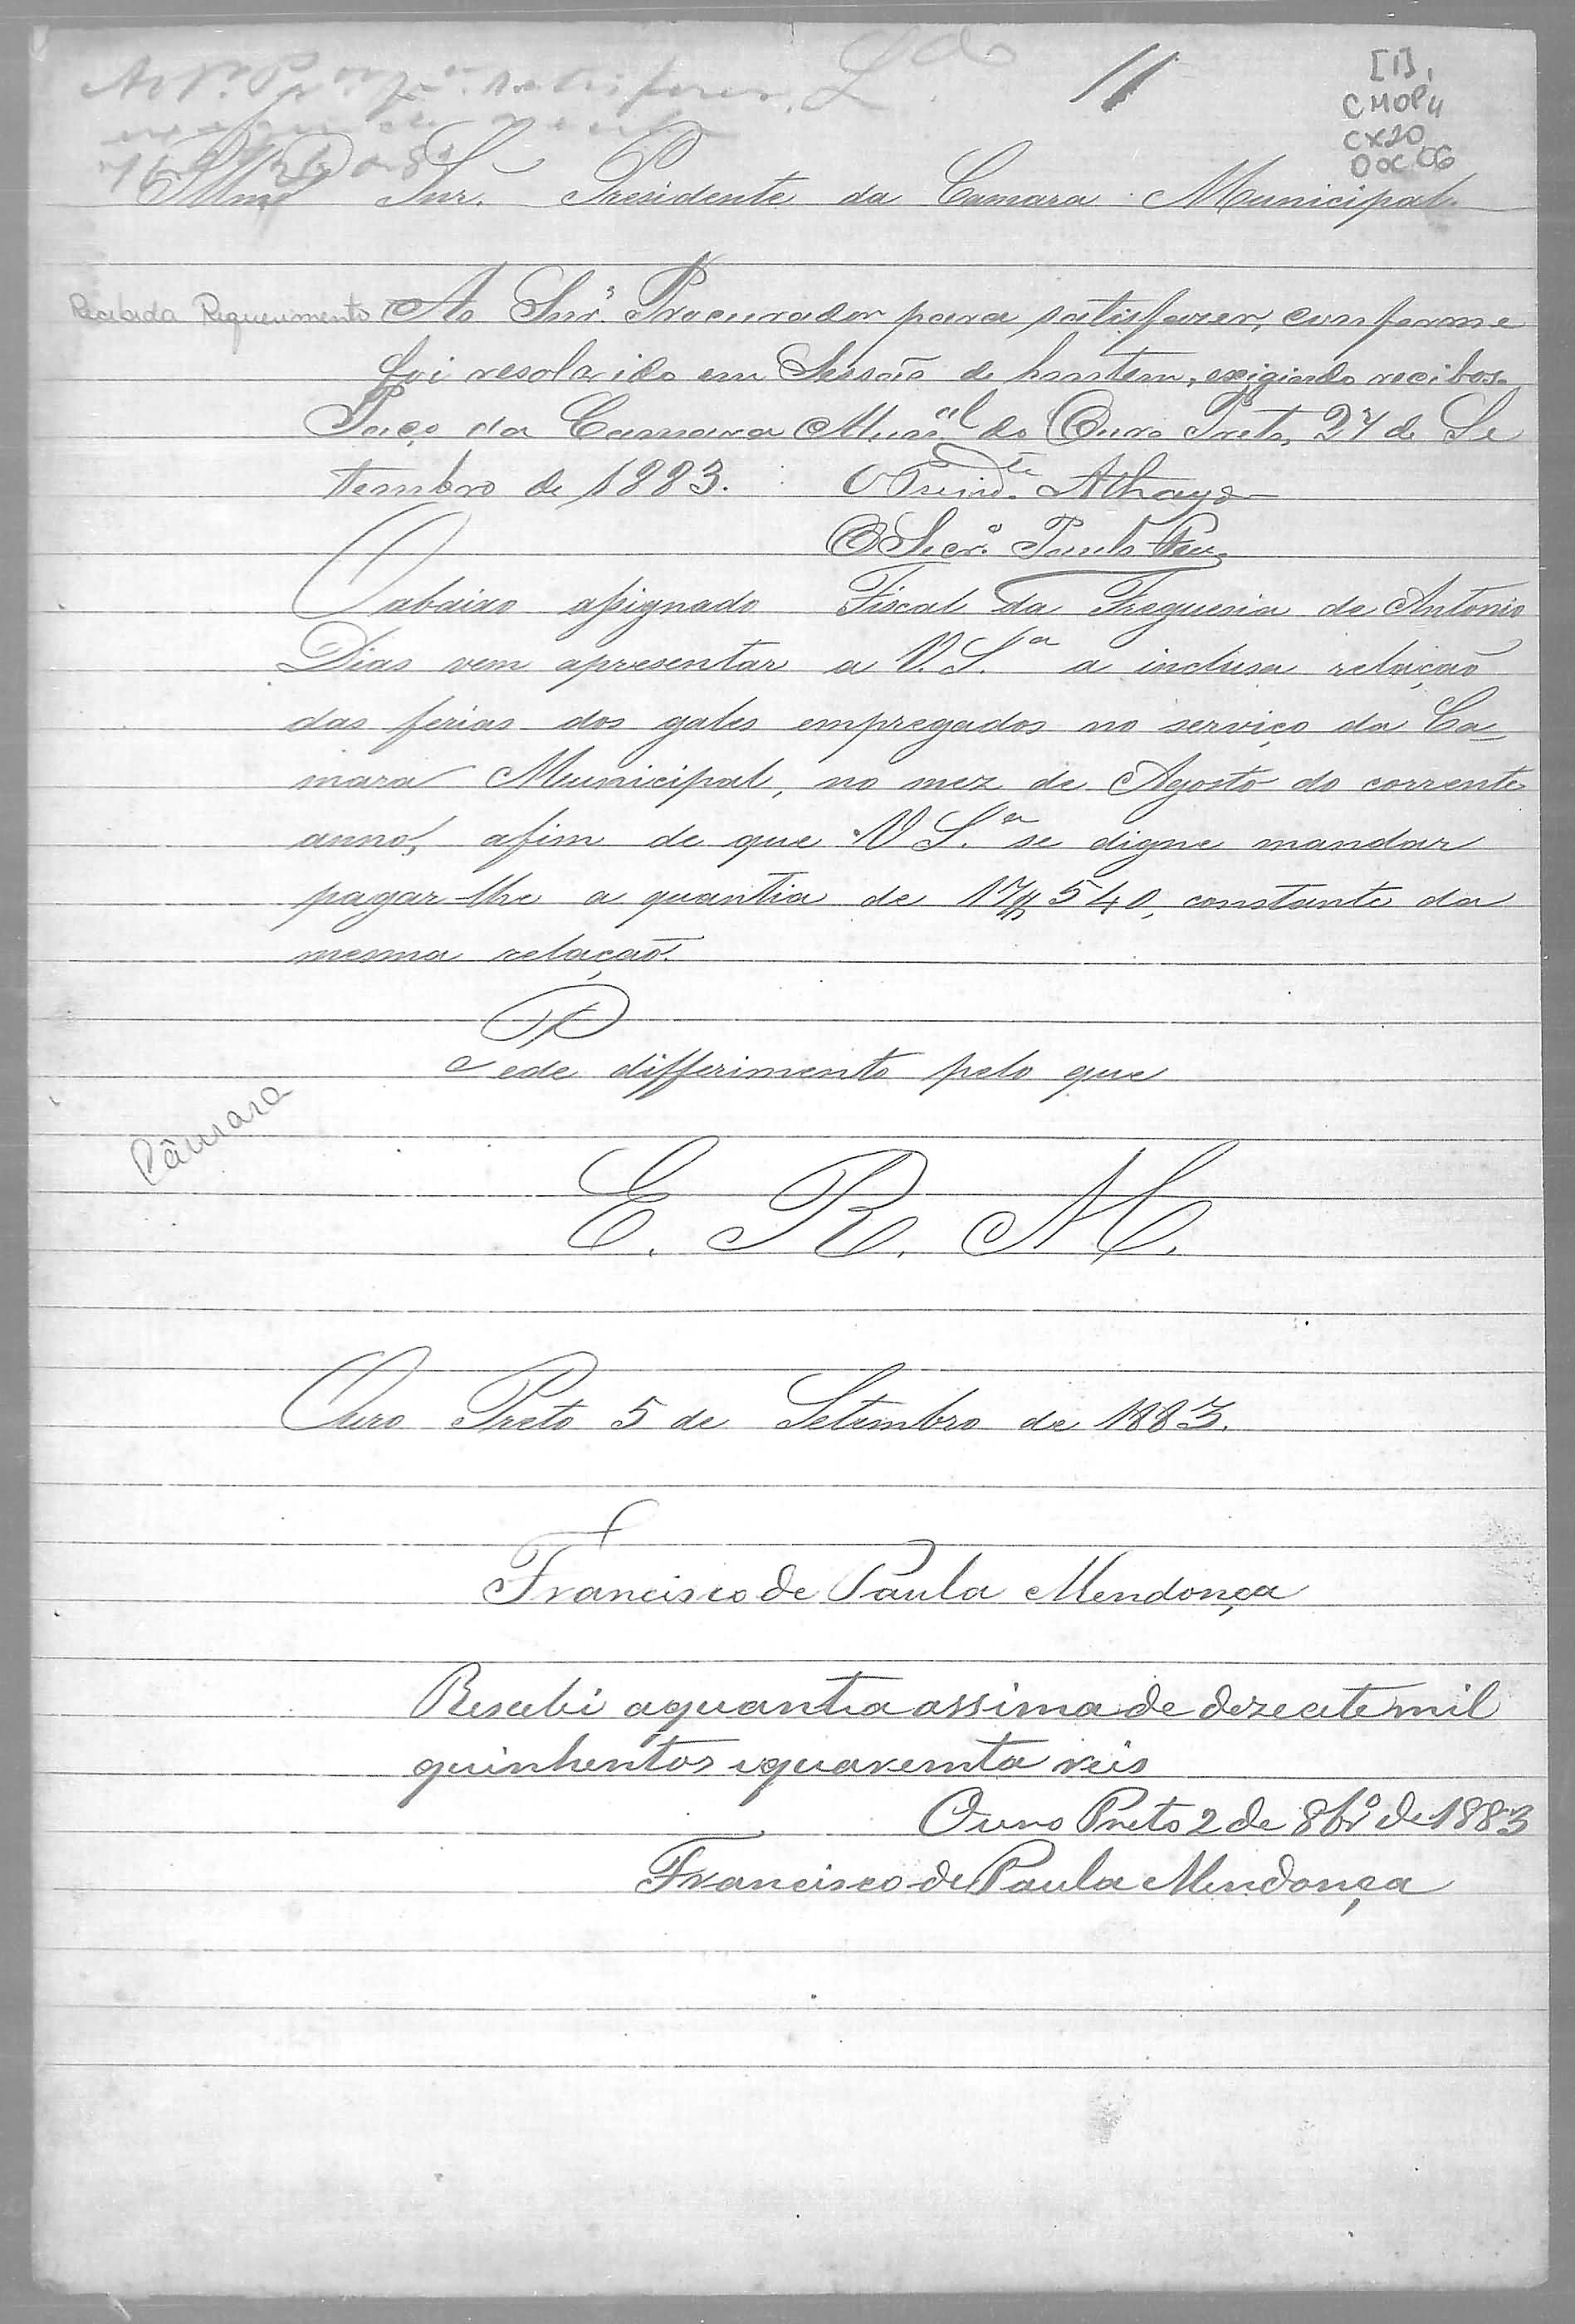 11
[1]
CMOP 4
CX20
DOC 06
Illmo Snr. Presidente da Camara Municipal.
Recibida Requerimento
Ao Snr. Procurador para satisfazer, conforme
foi resolvido em Sessão de hontem, exigindo recibos.
Paço da Camara Munal do Ouro Preto, 27 de Se
tembro de 1883.
O Preside. Athayde
O Secro. Paulo
O abaixo assignado Fiscal da Freguesia de Antonio
Dias vem apresentar a V. S.a a inclusa relação
das ferias dos gales empregados no serviço da Ca-
mara Municipal, no mez de Agosto do corrente
anno, afim de que V S.a se digne mandar
pagar-lhe a quantia de 17$540, constante da
mesma relação.
Pede differimento pelo que
Câmara
E. R. M.
Ouro Preto 5 de Setembro de 1883.
Francisco de Paula Mendonça
Resebi aquantia assima de dezecete mil
quinhentos equaremta reis
Ouro Preto 2 de 8bro de 1883
Francisco de Paula Mendonça